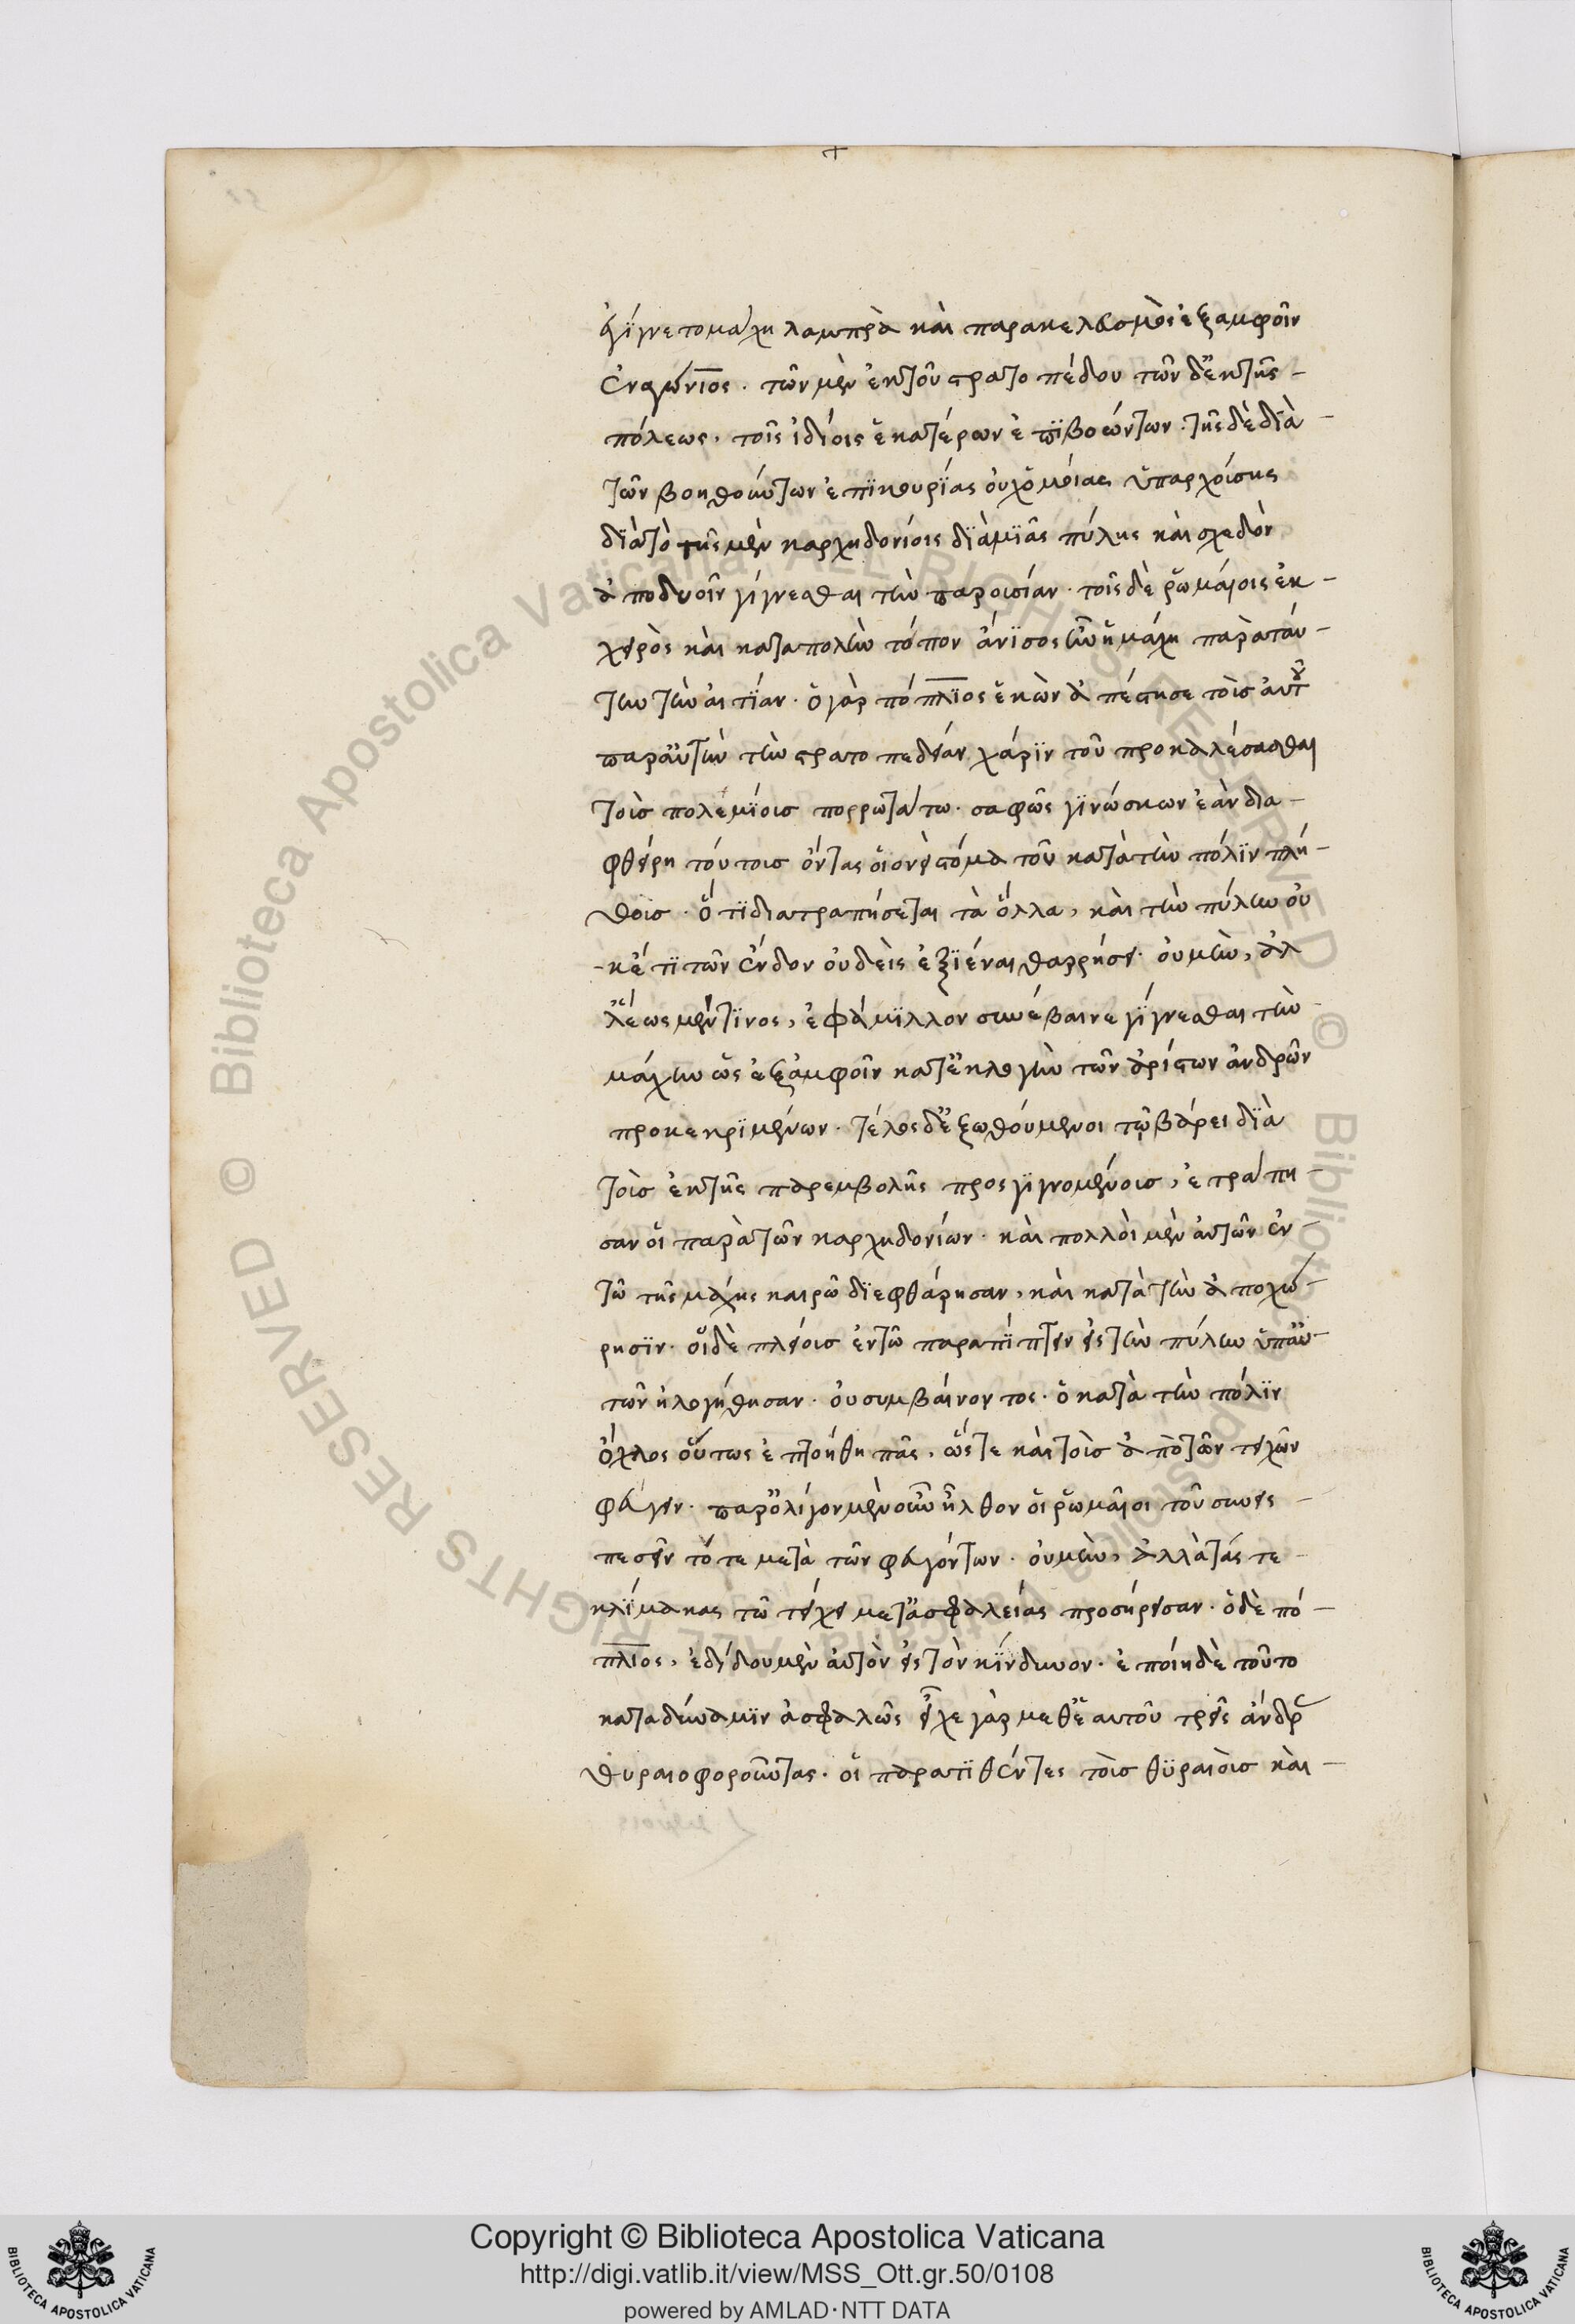 ἐγίγνετο μάχη λαμπρὰ καὶ παρακελευσμὸς ἐξ ἀμφοῖν
ἐναγώνιος. τῶν μὲν ἐκ τοῦ στρατοπέδου τῶν δ' ἐκ τῆς
πόλεως, τοῖς ἰδίοις ἑκατέρων ἐπιβοώντων. τῆς δὲ διὰ
τῶν βοηθούντων ἐπικουρίας οὐχ ὁμοίας ὑπαρχούσης
διὰ τὸ τῆς μὲν καρχηδονίοις διὰ μιᾶς πύλης καὶ σχεδὸν
ἀπὸ δυοῖν γίγνεσθαι τὴν παρουσίαν. τοῖς δὲ ῥωμαίοις ἐκ
χειρὸς καὶ κατὰ πολὺν τόπον ἄνισος ἦν ἡ μάχη παρὰ ταύ-
την τὴν αἰτίαν. ὁ γὰρ πόπλιος ἑκὼν ἀπέστησε τοὺς αὑτοῦ
παρ' αὐτὴν τὴν στρατοπεδείαν χάριν τοῦ προκαλέσασθαι
τοὺς πολεμίους πορρωτάτω. σαφῶς γινώσκων ἐὰν δια-
φθείρῃ τούτους ὄντας οἱονεὶ στόμα τοῦ κατὰ τὴν πόλιν πλή-
θους. ὅτι διατραπήσεται τὰ ὅλλα, καὶ τὴν πύλην οὐ
κέτι τῶν ἔνδον οὐδεὶς ἐξιέναι θαρρήσει. οὐ μὴν, ἀλ
λ' ἕως μέν τινος, ἐφάμιλλον συνέβαινε γίγνεσθαι τὴν
μάχην ὡς ἐξ ἀμφοῖν κατ' ἐκλογὴν τῶν ἀρίστων ἀνδρῶν
προκεκριμένων. τέλος δ' ἐξωθούμενοι τῷ βάρει διὰ
τοὺς ἐκ τῆς παρεμβολῆς προσγιγνομένους, ἐτράπη
σαν οἱ παρὰ τῶν καρχηδονίων. καὶ πολλοὶ μὲν αὐτῶν ἐν
τῶ τῆς μάχης καιρῶ διεφθάρησαν, καὶ κατὰ τὴν ἀποχώ
ρησιν. οἱ δὲ πλείους ἐν τῶ παραπίπτειν εἰς τὴν πύλην ὑπ' αὑ
τῶν ἠλογήθησαν. οὗ συμβαίνοντος. ὁ κατὰ τὴν πόλιν
ὄχλος οὕτως ἐπτοήθη πᾶς, ὥστε καὶ τοὺς ἀπὸ τῶν τειχῶν
φεύγειν. παρ' ὀλίγον μὲν οὖν ἦλθον οἱ ῥωμαῖοι τοῦ συνεισ
πεσεῖν τότε μετὰ τῶν φευγόντων. οὐ μὴν, ἀλλὰ τάς τε
κλίμακας τῶ τείχει μετ' ἀσφαλείας προσήρεισαν. ὁ δὲ πό
πλιος, ἐδίδου μὲν αὑτὸν εἰς τὸν κίνδυνον. ἐποίει δὲ τοῦτο
κατὰ δύναμιν ἀσφαλῶς εἶχε γὰρ μεθ' ἑαυτοῦ τρεῖς ἄνδρας
θυραιοφοροῦντας. οἱ παρατιθέντες τοὺς θυραιοὺς καὶ